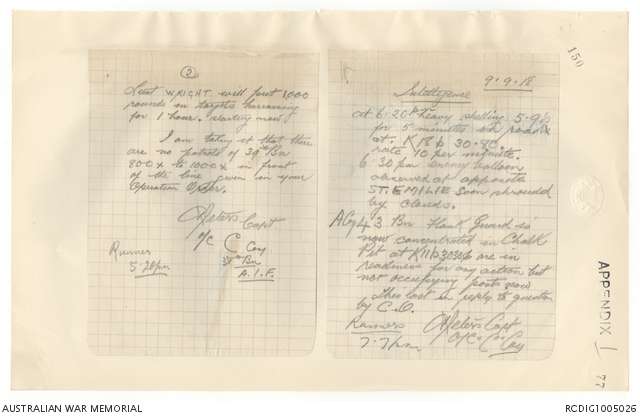 ②
Lieut WRIGHT will put 1000
rounds on targets harrassing
for 1 hour. starting now
I am taking it that there
are no patrols of 39th Bn
800x to 1000x in front
of the line given in your
Operation Order.
C Peters Capt
O/C C Coy
38th Bn
A.I.F.
Runner
5.20pm
9.9.18
Intelligence
at 6.20pm heavy shelling 5.9s
for 5 minutes on road
at K18 b 30.80
rate 10 per minute.
6.30 pm enemy balloon
observed at opposite
ST. EMILIE soon shrouded
by clouds.
A Coy 43 Bn Flank Guard is
now concentrated in Chalk
Pit at K11 are in
readiness for any action but
not occupying posts now
This last in reply to question
by C.O.
Runners
7.7pm
C Peters Capt
O/C "C" Coy
150
APPENDIX 1
77
AUSTRALIAN WAR MEMORIAL
RCDIG1005026